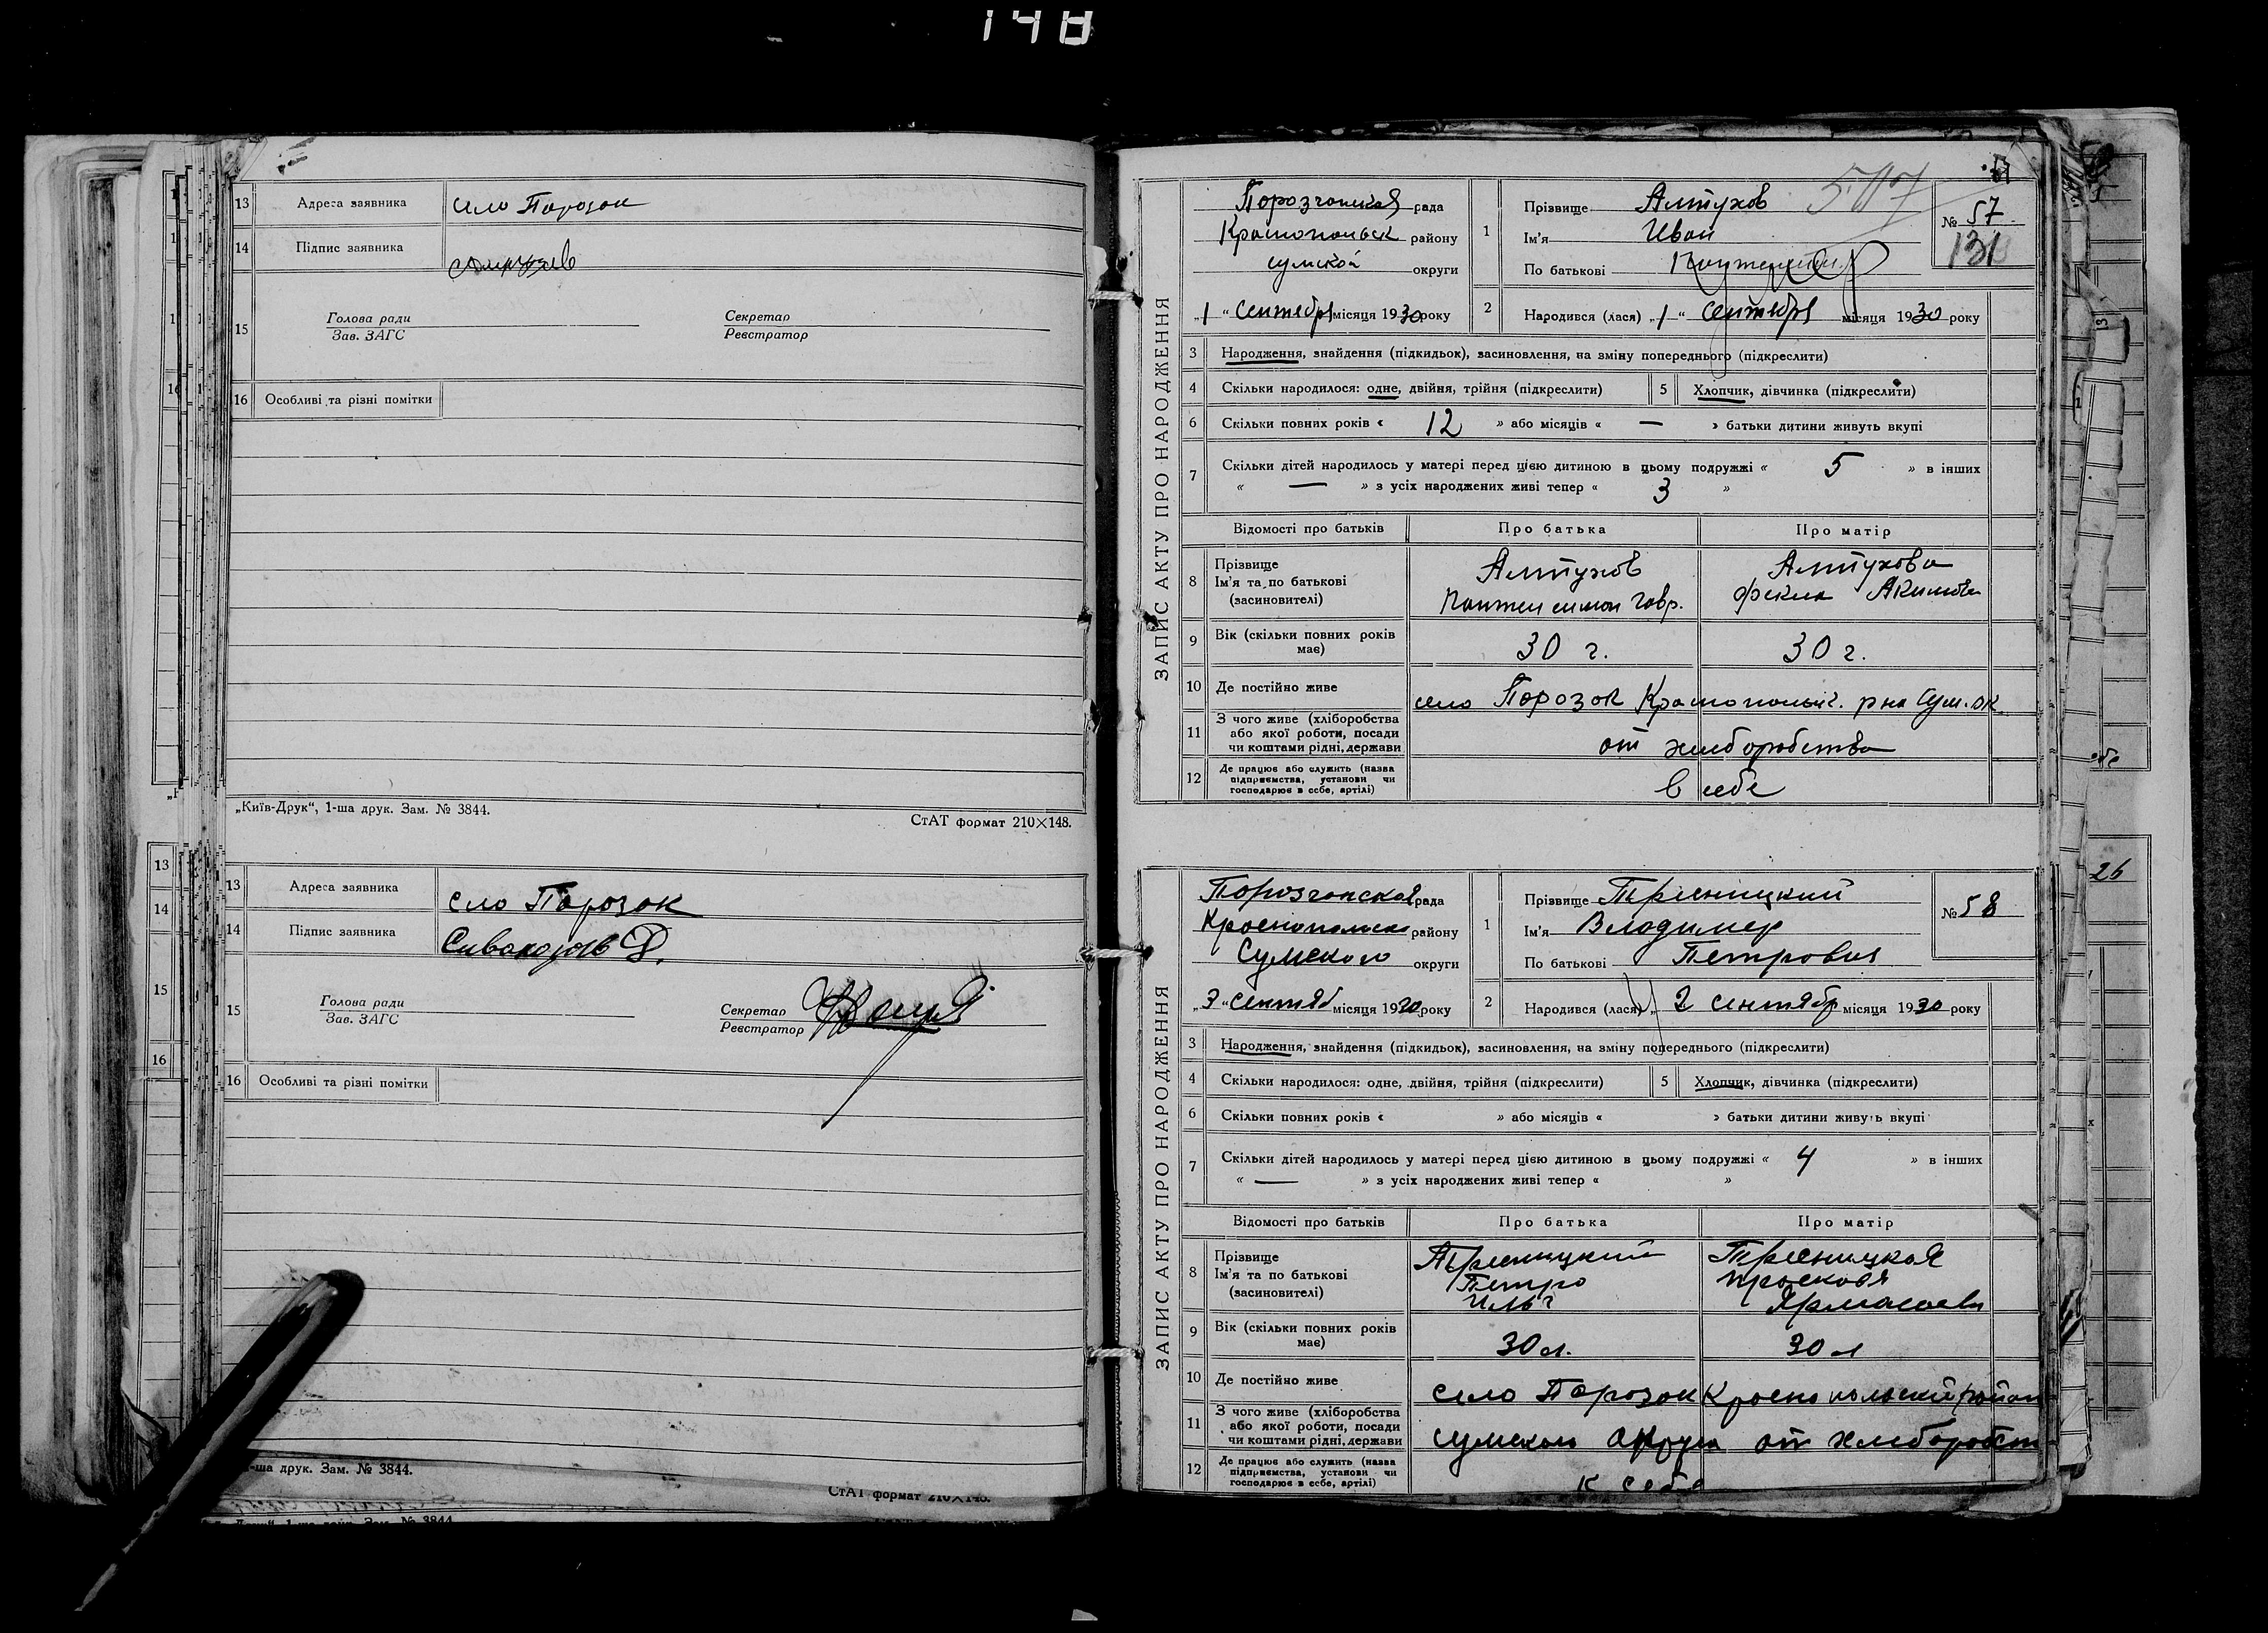 148
13 Адреса заявника село Порозок
14 Підпис заявника
15 Голова ради Секретар
Зав. ЗАГС Реєстратор
16 Особливі та різні помітки
„Київ-Друк“, 1-ша друк. Зам. № 3844.
СтАТ формат 210×148.
13 Адреса заявника село Порозок
14 Підпис заявника
15 Голова ради Секретар
Зав. ЗАГС Реєстратор
16 Особливі та різні помітки
-ша друк. Зам. № 3844.
СтАТ формат 210×148.
ЗАПИС АКТУ ПРО НАРОДЖЕННЯ
Порозчанская рада 1 Прізвище Алтухов № 57
Краснопольск району Ім'я Иван 131
сумской округи По батькові
„1“ Сентября місяця 1930 року 2 Народився (лася) „1“ Сентября місяця 1930 року
3 Народження, знайдення (підкидьок), засиновлення, на зміну попереднього (підкреслити)
4 Скільки народилося: одне, двійня, трійня (підкреслити) 5 Хлопчик, дівчинка (підкреслити)
6 Скільки повних років « 12 » або місяців « — » батьки дитини живуть вкупі
7 Скільки дітей народилось у матері перед цією дитиною в цьому подружжі « 5 » в інших
« — » з усіх народжених живі тепер « 3 »
Відомості про батьків Про батька Про матір
8 Прізвище Алтухов Алтухова
Ім'я та по батькові Пантелимон Гавр. Фекла Акимовна
(засиновителі)
9 Вік (скільки повних років має) 30 г. 30 г.
10 Де постійно живе село Порозок Краснопольск. р на Сум. ок.
11 З чого живе (хліборобства
або якої роботи, посади
чи коштами рідні, держави от хлеборобства
12 Де працює або служить (назва
підприємства, установи чи
господарює в себе, артілі) в себе
ЗАПИС АКТУ ПРО НАРОДЖЕННЯ
Порозчанская рада 1 Прізвище Тресницкий № 58
Краснопольск району Ім'я Владимер
Сумского округи По батькові Петрович
„3“ сентяб місяця 1930 року 2 Народився (лася) „2 сентябр місяця 1930 року
3 Народження, знайдення (підкидьок), засиновлення, на зміну попереднього (підкреслити)
4 Скільки народилося: одне, двійня, трійня (підкреслити) 5 Хлопчик, дівчинка (підкреслити)
6 Скільки повних років « » або місяців « » батьки дитини живуть вкупі
7 Скільки дітей народилось у матері перед цією дитиною в цьому подружжі « 4 » в інших
« — » з усіх народжених живі тепер « »
Відомості про батьків Про батька Про матір
8 Прізвище Тресницкий Тресницкая
Ім'я та по батькові Петро Просковя
(засиновителі)
9 Вік (скільки повних років має) 30 л. 30 л
10 Де постійно живе село Порозок Краснопольский район
11 З чого живе (хліборобства
або якої роботи, посади
чи коштами рідні, держави сумского округа от хлеборобст
12 Де працює або служить (назва
підприємства, установи чи
господарює в себе, артілі) в себе